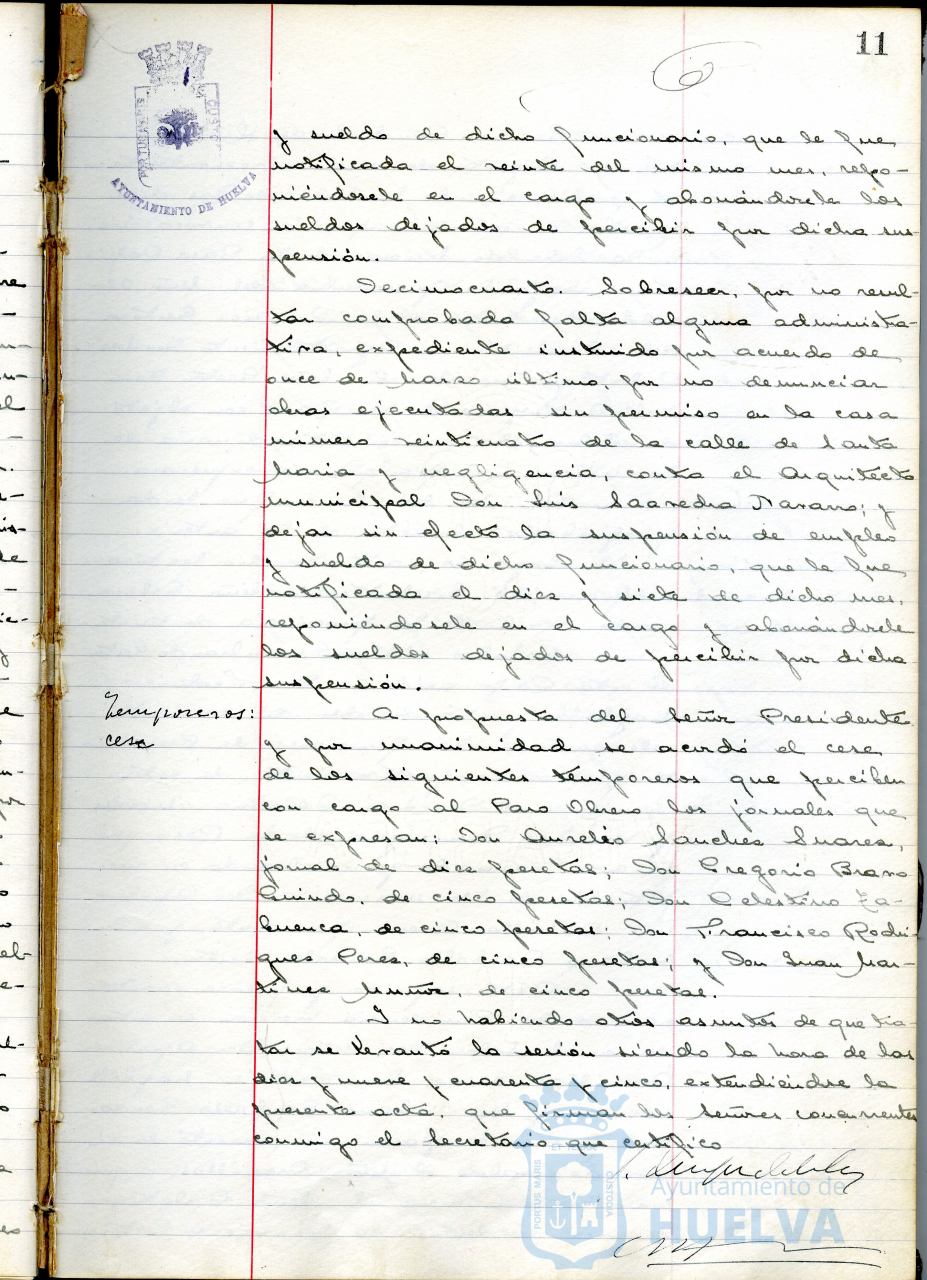 11
PORTUS MARIS
CUSTODIA
AYUNTAMIENTO DE HUELVA
y sueldo de dicho funcionario, que le fue
notificada el veinte del mismo mes, repo-
niéndosele en el cargo y abonándosele los
sueldos dejados de percibir por dicha sus-
pensión.
Decimocuarto. Sobreseer, por no resul-
tar comprobada falta alguna administra-
tiva, expediente instruido por acuerdo de
once de Marzo último, por no denunciar
obras ejecutadas sin permiso en la casa
número veinticuatro de la calle de Santa
Maria y negligencia, contra el Arquitecto
municipal Don Luis Saavedra Navarro; y
dejar sin efecto la suspensión de empleo
y sueldo de dicho funcionario, que le fue
notificada el diez y siete de dicho mes,
reponiéndosele en el cargo y abonándosele
los sueldos dejados de percibir por dicha
suspensión.
Temporeros:
cese
A propuesta del Señor Presidente
y por unanimidad se acordó el cese
de los siguientes temporeros que perciben
con cargo al Paro Obrero los jornales que
se expresan: Don Aurelio Sanchez Suarez,
jornal de diez pesetas; Don Gregorio Bravo
Guindo, de cinco pesetas; Don Celestino Za-
buenca, de cinco pesetas; Don Francisco Rodri-
guez Perez, de cinco pesetas; y Don Juan Mar-
tinez Muñoz, de cinco pesetas.
Y no habiendo otros asuntos de que tra-
tar se levantó la sesión siendo la hora de las
diez y nueve y cuarenta y cinco, extendiéndose la
presente acta, que firman los Señores concurrentes
conmigo el Secretario que certifico
PORTUS MARIS
CUSTODIA
Ayuntamiento de
HUELVA